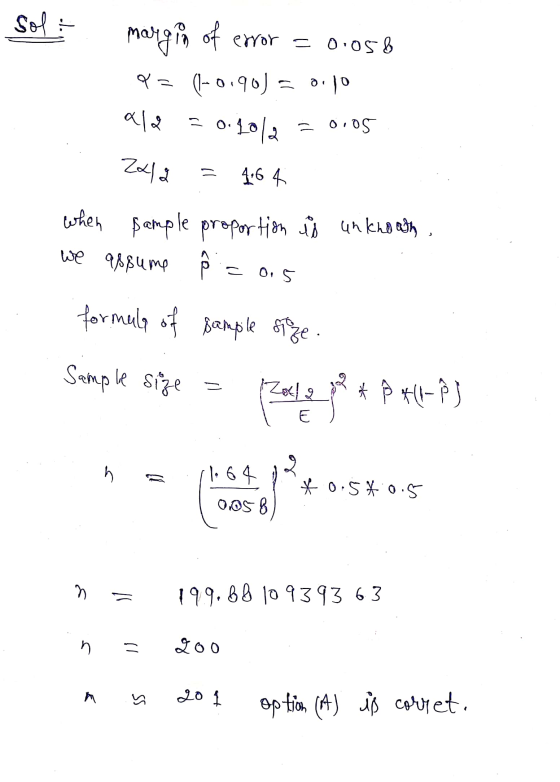 Sol :-
margin of error = 0.058
α = (1-0.90) = 0.10
α/2 = 0.10/2 = 0.05
Zα/2 = 1.64
when sample proportion is unknown,
we assume p̂ = 0.5
formula of sample size.
Sample size = (Zα/2 / E)² * p̂ *(1-p̂)
n = (1.64 / 0.058)² * 0.5 * 0.5
n = 199.8810939363
n = 200
n ≈ 201 option (A) is corret.